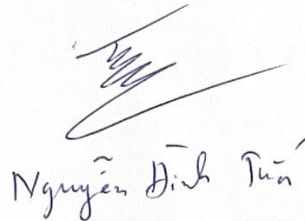 Nguyễn Đình Tuấn